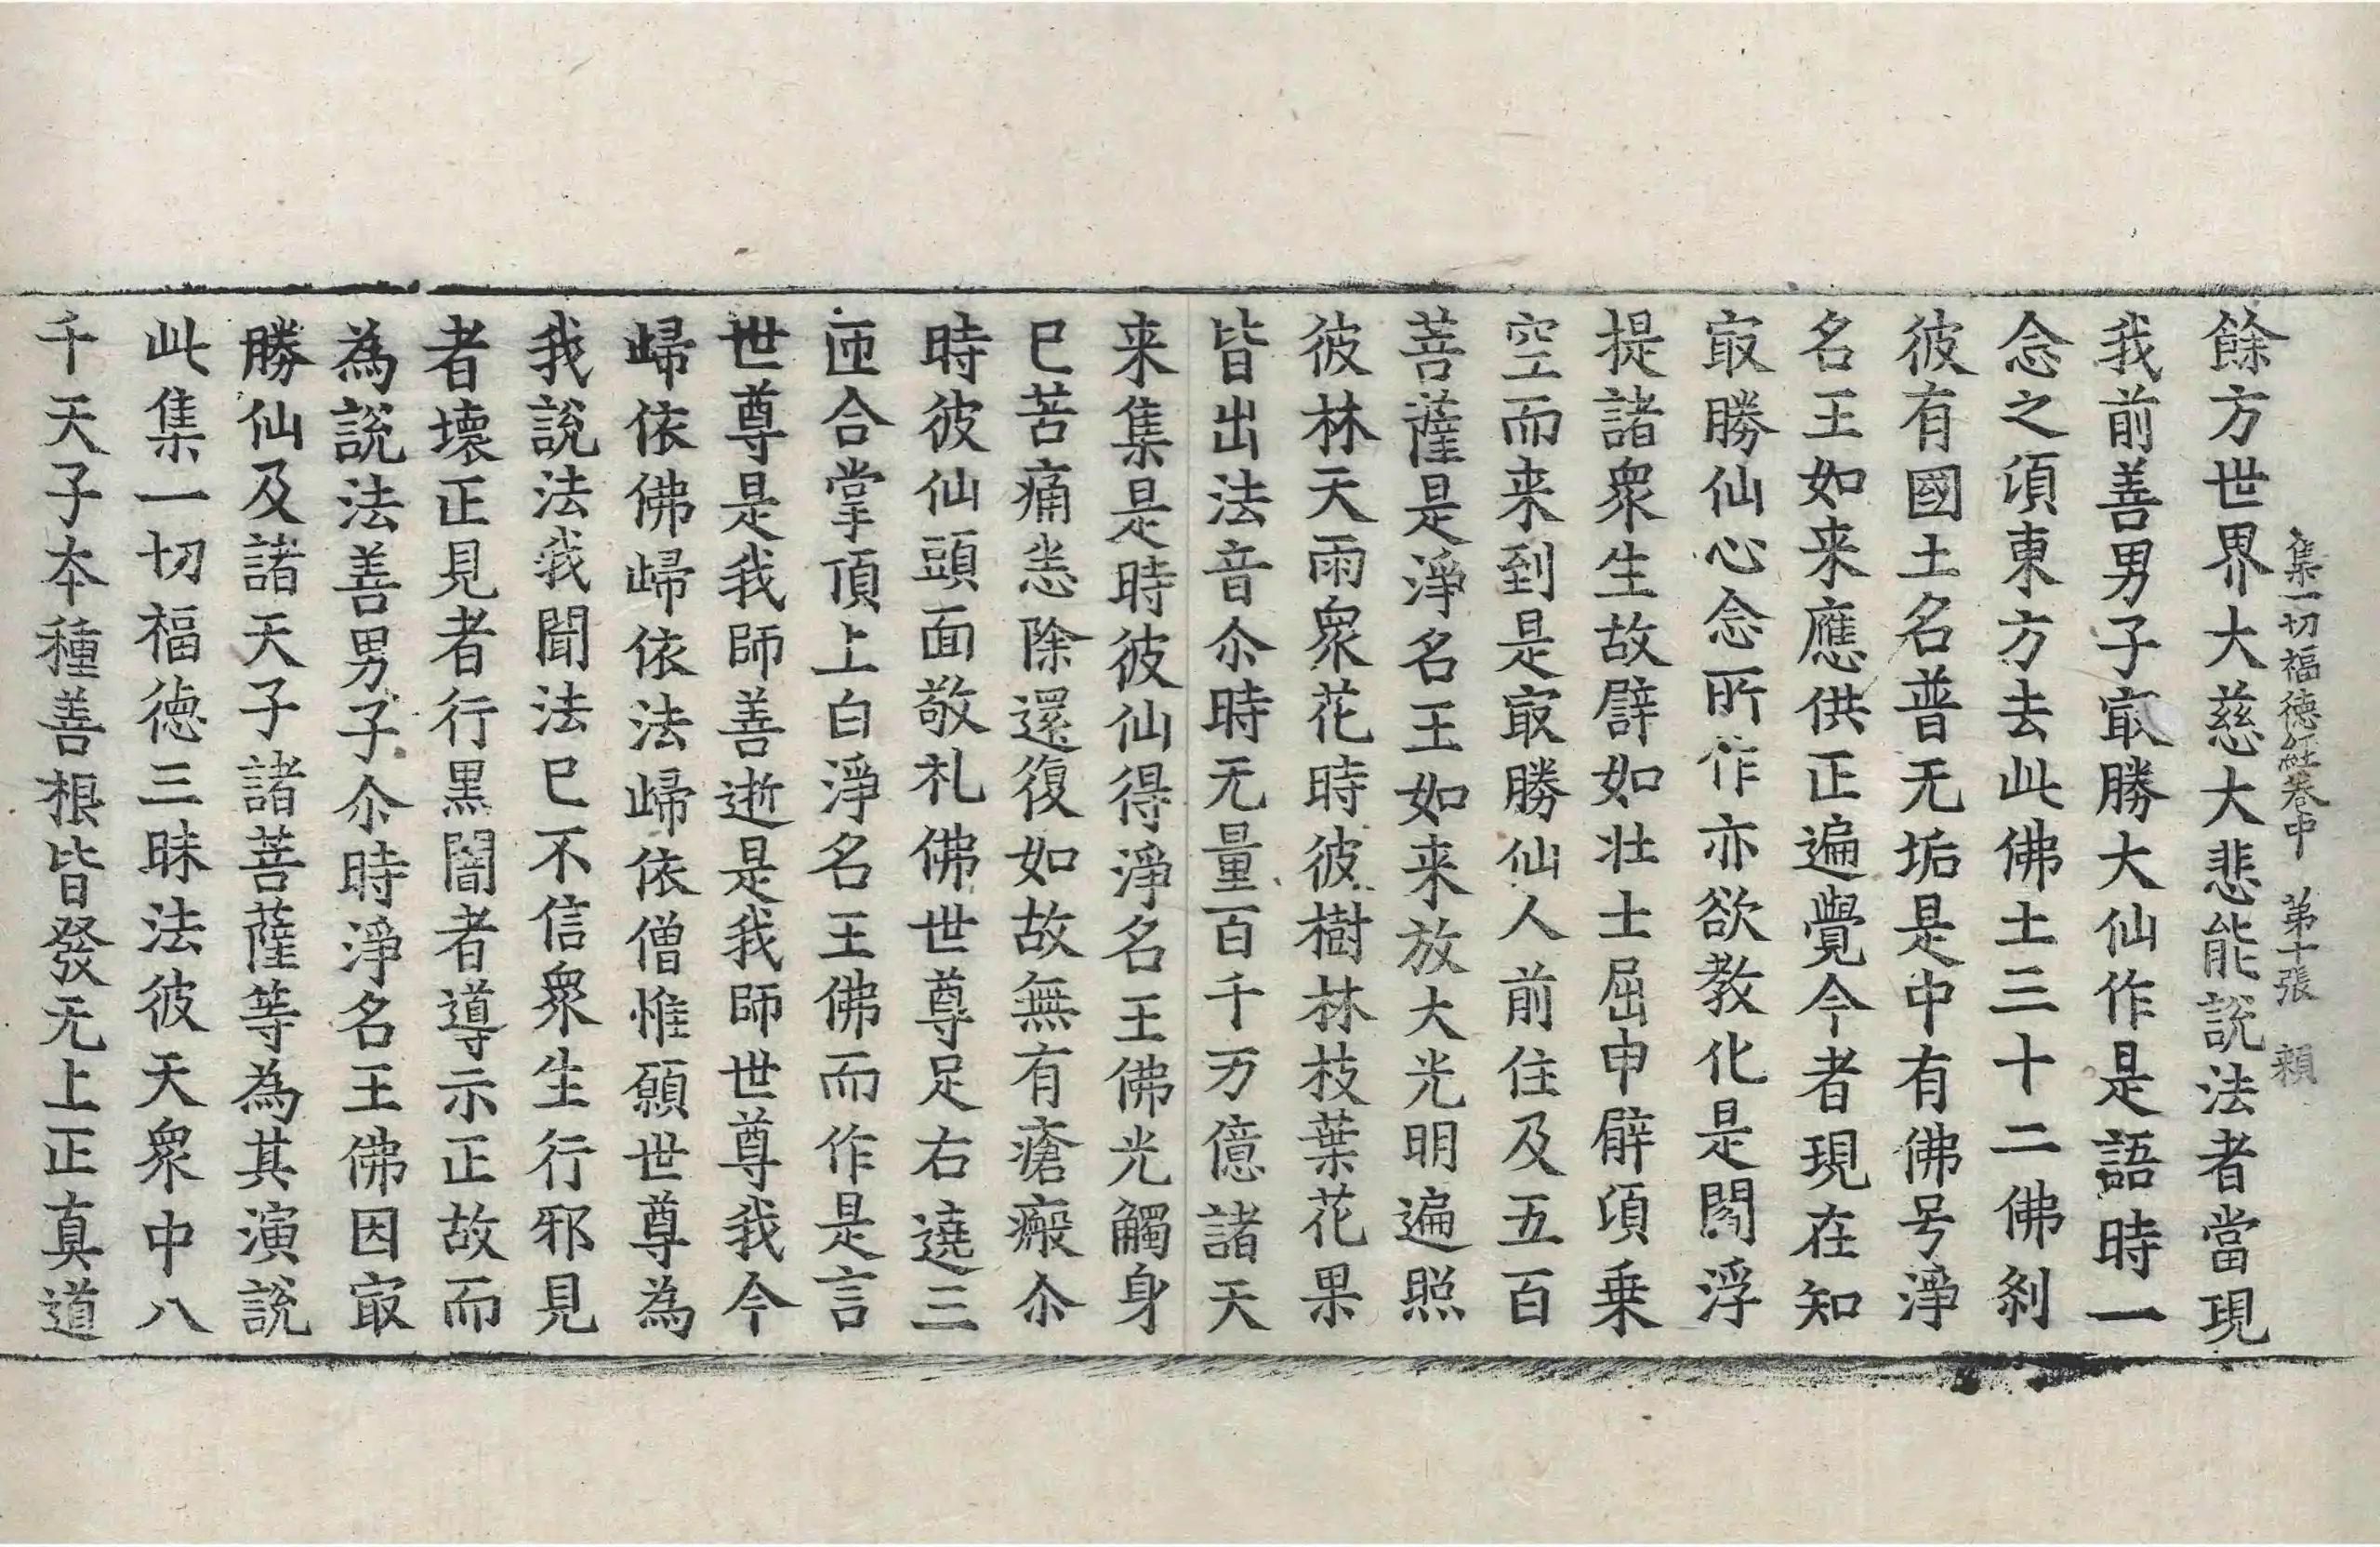 集一切福徳経卷中　第十張　頼
餘方世界大慈大悲能說法者當現
我前善男子㝡勝大仙作是語時一
念之頃東方去此佛土三十二佛刹
彼有國土名普无垢是中有佛号淨
名王如来應供正遍覺今者現在知
㝡勝仙心念所作亦欲教化是閻浮
提諸衆生故譬如壮士屈申臂頃乗
空而来到是㝡勝仙人前住及五百
菩薩是淨名王如来放大光明遍照
彼林天雨衆花時彼樹林枝葉花果
皆出法音尒時无量百千万億諸天
来集是時彼仙得淨名王佛光觸身
已苦痛悉除還復如故無有瘡瘢尒
時彼仙頭面敬礼佛世尊足右遶三
匝合掌頂上白淨名王佛而作是言
世尊是我師善逝是我師世尊我今
歸依佛歸依法歸依僧惟願世尊為
我說法我聞法已不信衆生行邪見
者壊正見者行黒闇者導示正故而
為說法善男子尒時淨名王佛因㝡
勝仙及諸天子諸菩薩等為其演說
此集一切福徳三昧法彼天衆中八
千天子夲種善根皆發无上正真道